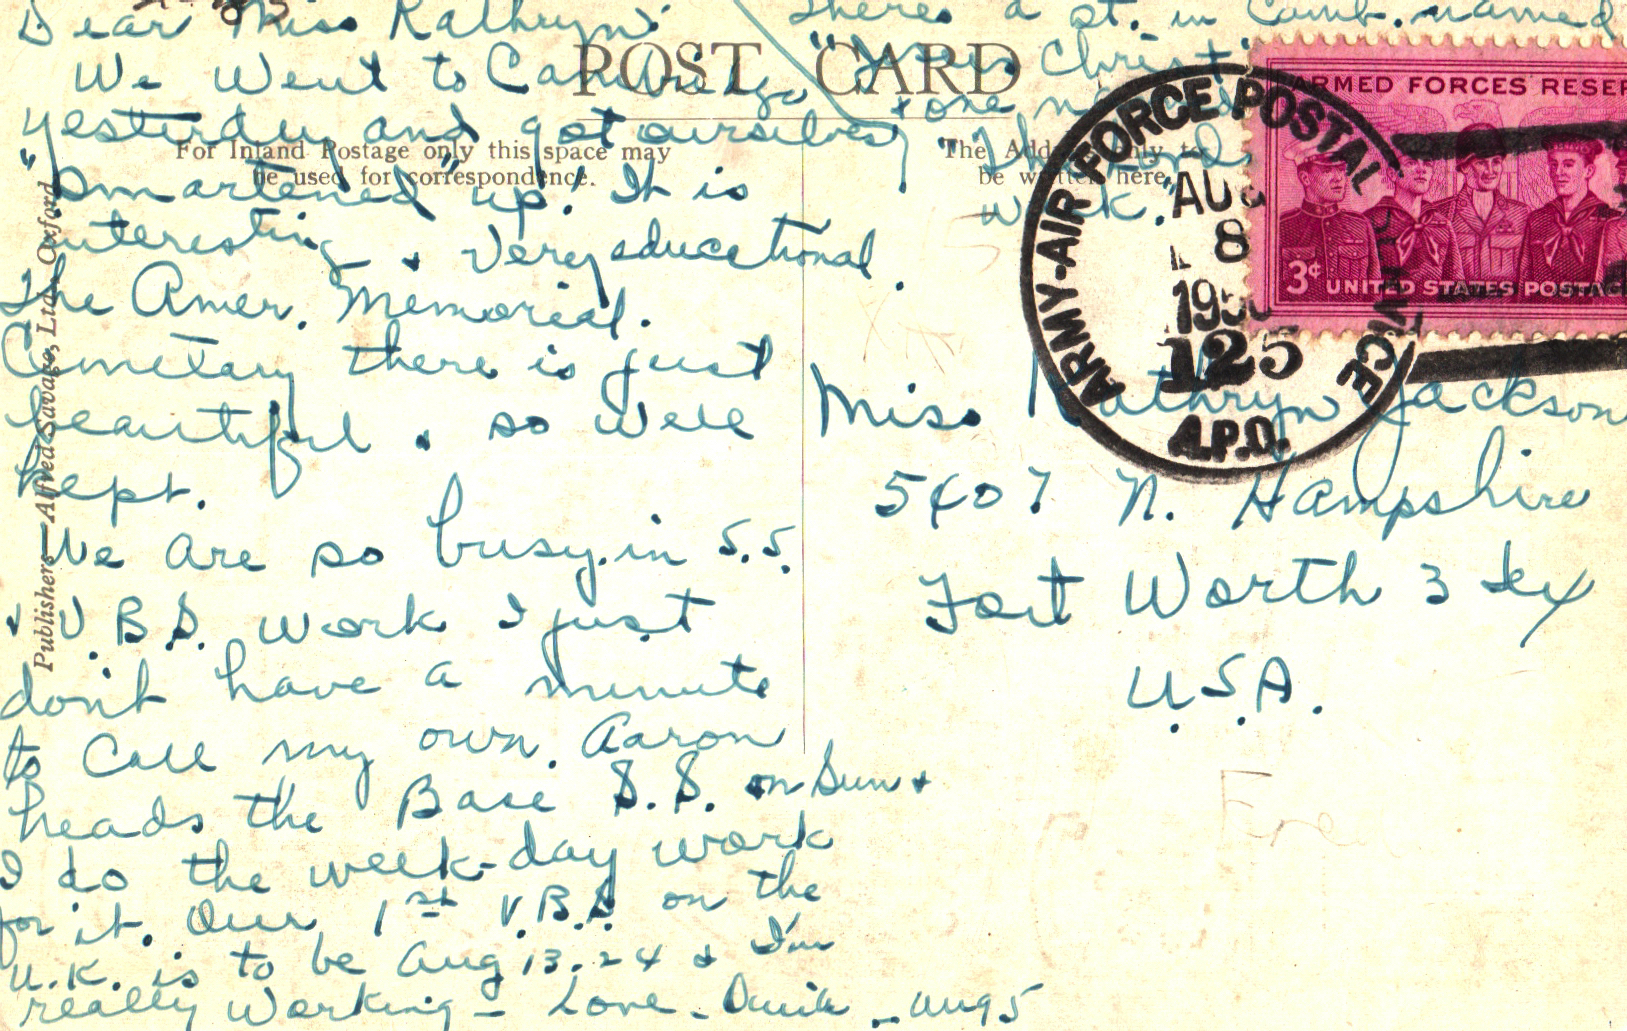 Dear Miss Kathryn
We went to Cambridge
yesterday and got ourselves
"smartened" up! It is
interesting & very educational.
The Amer. Memorial.
Cemetary there is just
beautiful & so well
kept.
We are so busy in S.S.
& V.B.S. work I just
don't have a minute
to call my own. Aaron
heads the Base S.S. on Sun &
I do the week-day work
for it. Our 1st V.B.S. on the
U.K. is to be Aug 13-24 & I'm
really working - Love - Aug 5
There's a st. in Camb. named
"Jesus Christ"
& one named
week.
POST CARD
For Inland Postage only this space may
be used for correspondence.
The Address only to
be written here.
Publishers—Alfred Savage, Ltd., Oxford
ARMY-AIR FORCE POSTAL SERVICE
AUG
8
125
A.P.O.
ARMED FORCES RESER
3¢ UNITED STATES POSTAG
Miss Kathryn Jackson
5407 N. Hampshire
Fort Worth 3 Tex
U.S.A.